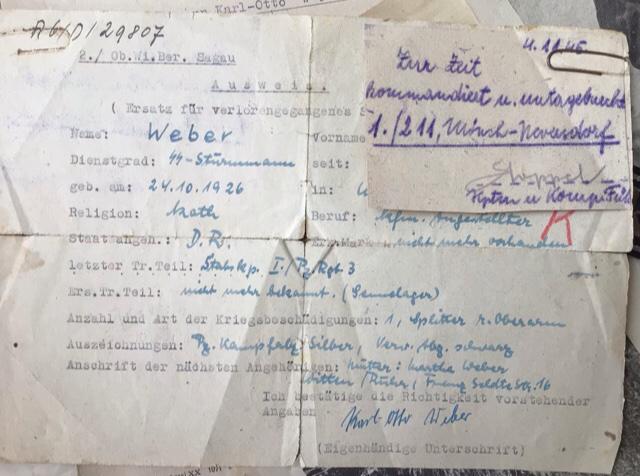 Karl-Otto
A6/D/29807
2./ Ob.Wi.Ber. Sagau
Ausweis.
(Ersatz für verlorengegangenes S
Name: Weber
Vorname
Dienstgrad: SS-Sturmmann
seit:
geb. am: 24.10.1926
in:
Religion: kath
Beruf: kfm. Angestellter
Staatsangeh.: D.R.
Erk.Marke: nicht mehr vorhanden
letzter Tr.Teil: Stabskp. I./Pz.Rgt 3
Ers.Tr.Teil: nicht mehr bekannt. (Sennelager)
Anzahl und Art der Kriegsbeschädigungen: 1, Splitter r. Oberarm
Auszeichnungen: Pz. Kampfabz. Silber, Verw. Abz. schwarz
Anschrift der nächsten Angehörigen: Mutter: Martha Weber
Witten/Ruhr, Franz Seldte Str. 16
Ich bestätige die Richtigkeit vorstehender
Angaben Karl-Otto Weber
(Eigenhändige Unterschrift)
4.11.45
Zur Zeit
kommandiert u. untergebracht
1./211, Mönch-Neversdorf
Hptm u Komp. Füh